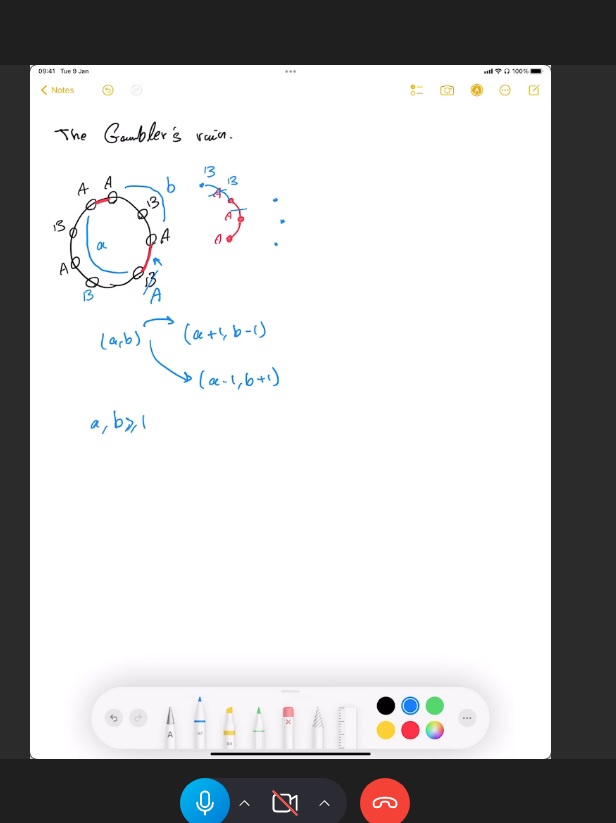 09:41 Tue 9 Jan
100%
Notes
The Gambler's ruin.
A A b B B
B B A A
a A A
A B A
B
(a,b) (a+1, b-1)
(a-1, b+1)
a, b ⩾ 1
A